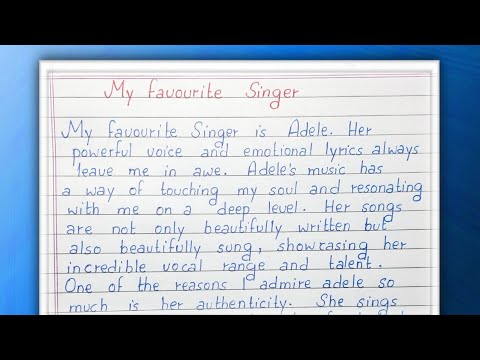 My favourite Singer
My favourite Singer is Adele. Her
powerful voice and emotional lyrics always
leave me in awe. Adele's music has
a way of touching my soul and resonating
with me on a deep level. Her songs
are not only beautifully written but
also beautifully sung, showcasing her
incredible vocal range and talent.
One of the reasons I admire adele so
much is her authenticity. She sings